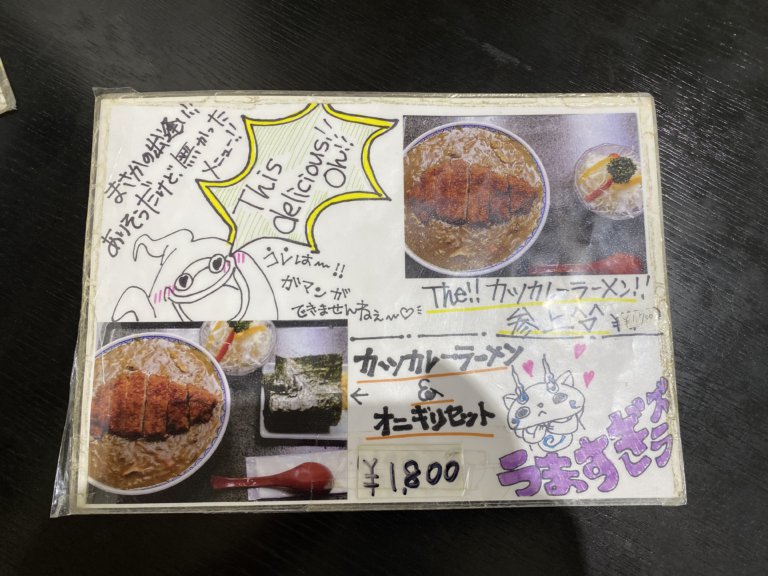 まさかの出逢い!!
ありそうだけど、無かった
メニュー!!
This
delicious!!
Oh!!
コレは〜!!
ガマンが
できませんねぇ〜♡
The!! カツカレーラーメン!!
参上
カツカレーラーメン
&
オニギリセット
¥1,800
うまっすぎ
ズラ